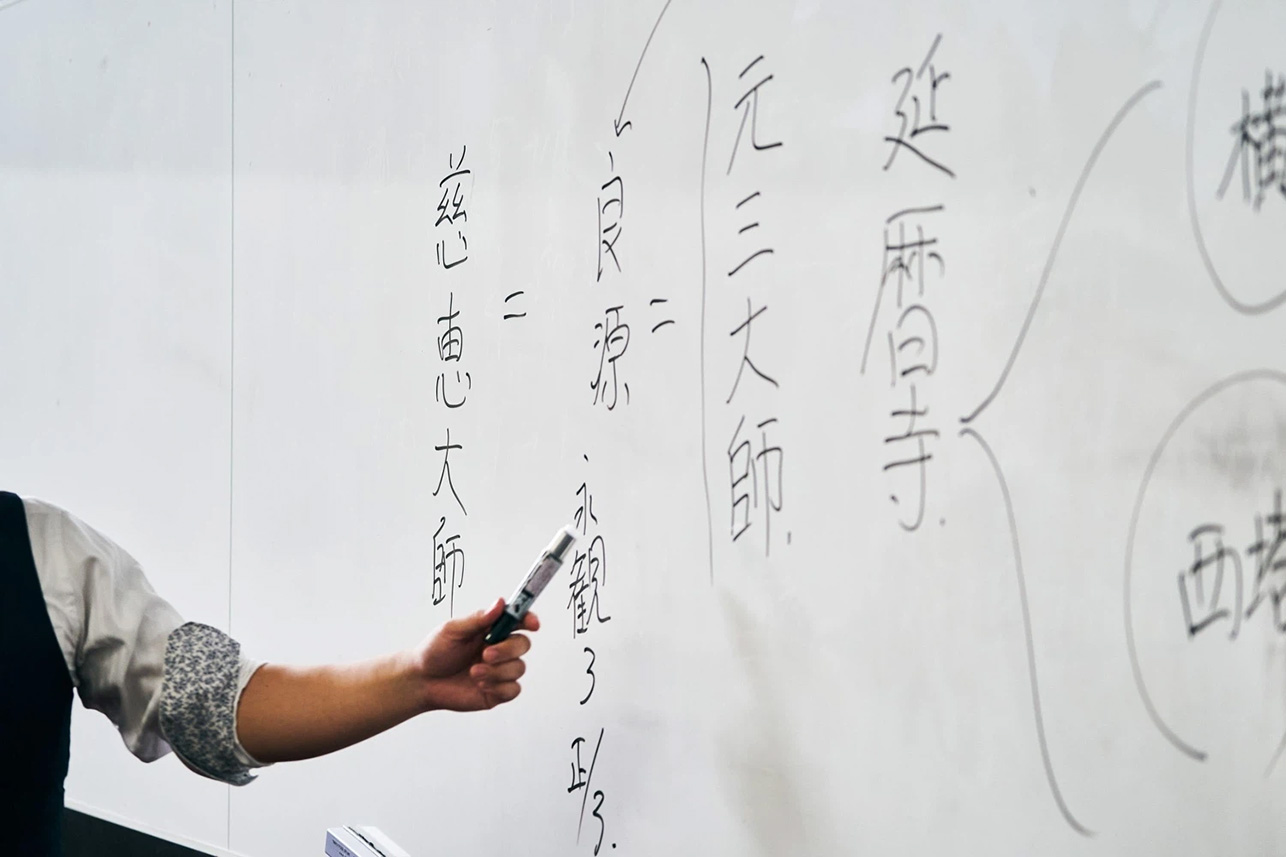 横
西塔
延暦寺.
元三大師.
=
良源 永観3 正/3.
=
慈恵大師